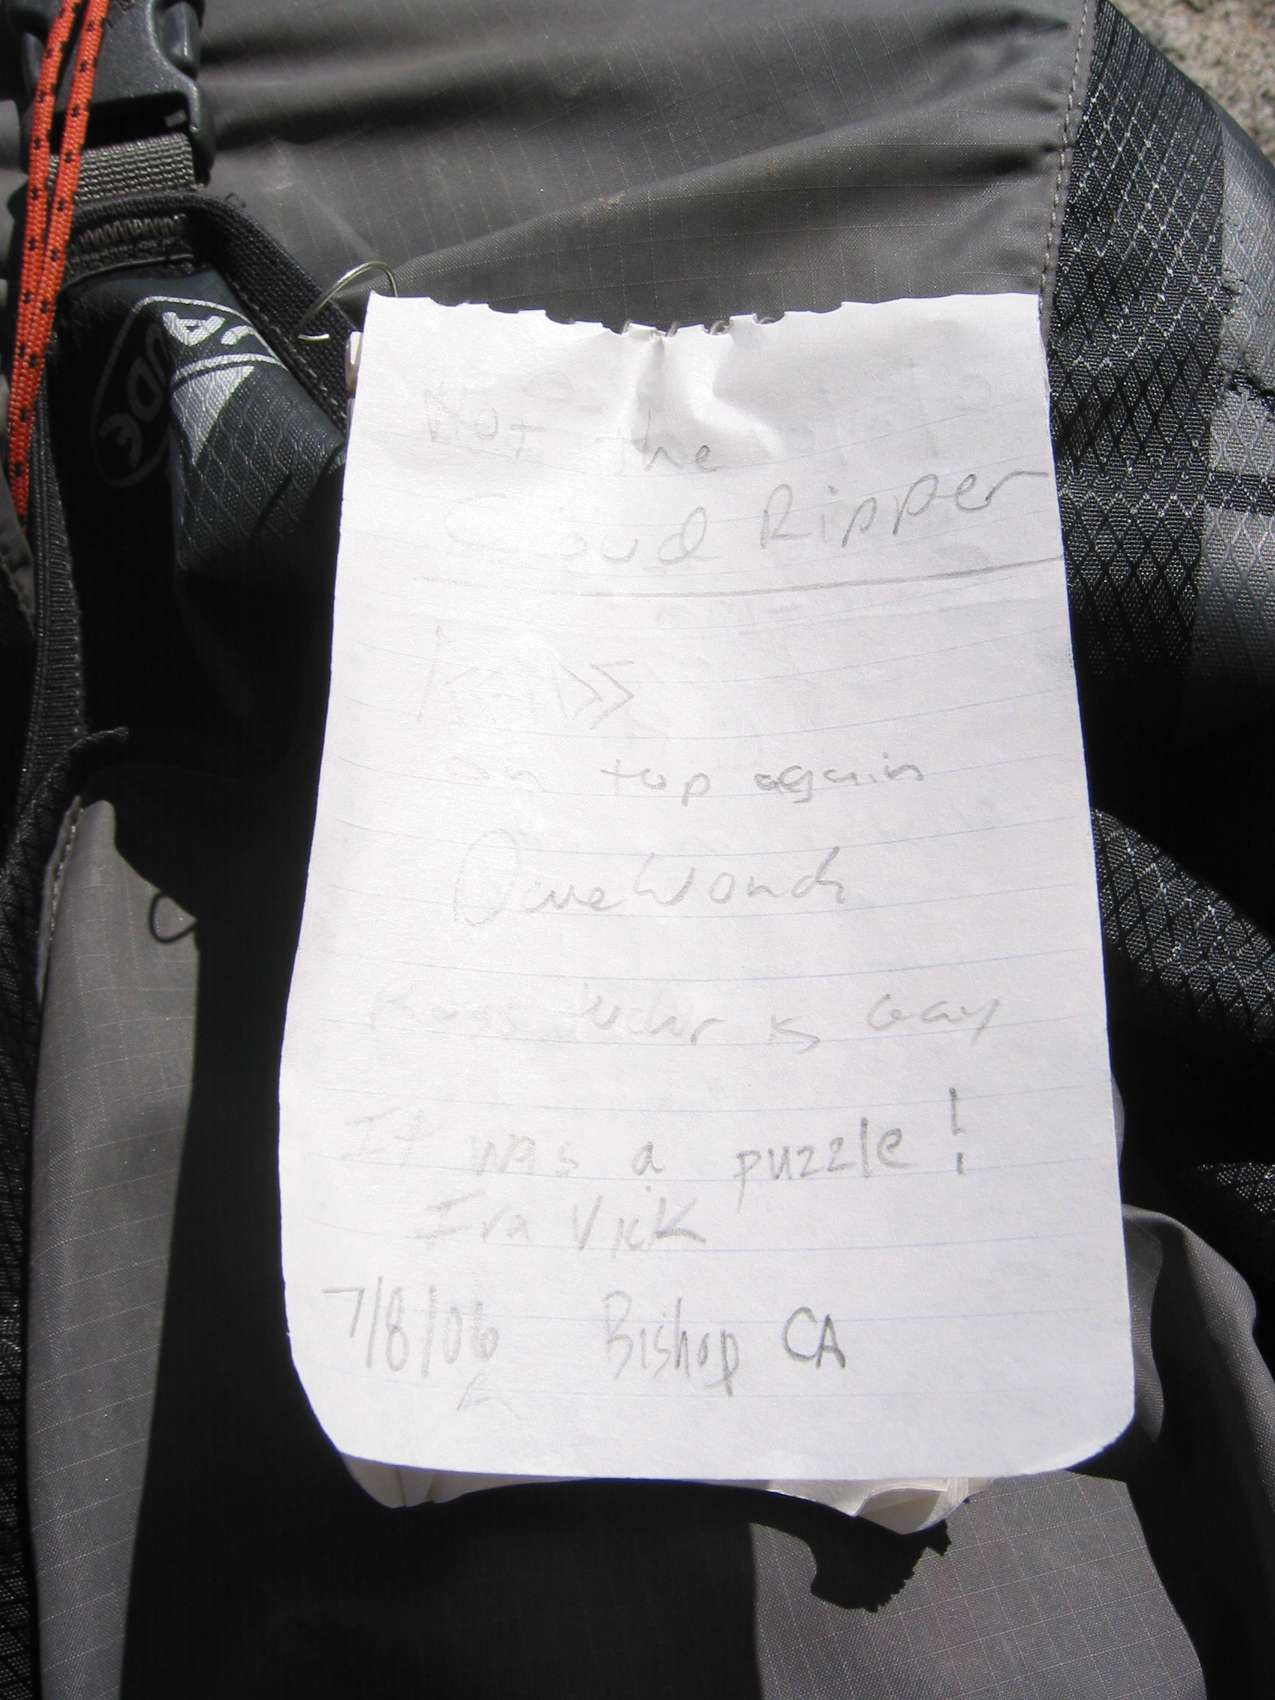 Not the
Cloud Ripper
on top again
Dave
is Gay
It was a puzzle!
Ira Vick
7/8/06 Bishop CA